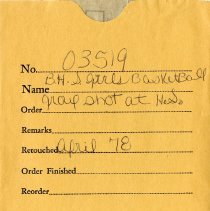 No. 03519
B.H.S girls Basketball
Name
group shot at H.S.
Order
Remarks
Retouched April 78
Order Finished
Reorder